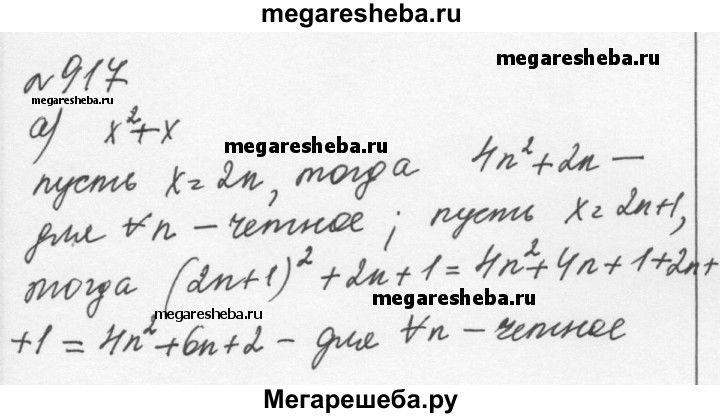 megaresheba.ru
№917
megaresheba.ru
megaresheba.ru
а) x²+x
megaresheba.ru
пусть x=2n, тогда 4n²+2n —
для ∀n – четное; пусть x=2n+1,
тогда (2n+1)²+2n+1=4n²+4n+1+2n+
megaresheba.ru
megaresheba.ru
+1=4n²+6n+2 – для ∀n – четное
Мегарешеба.ру